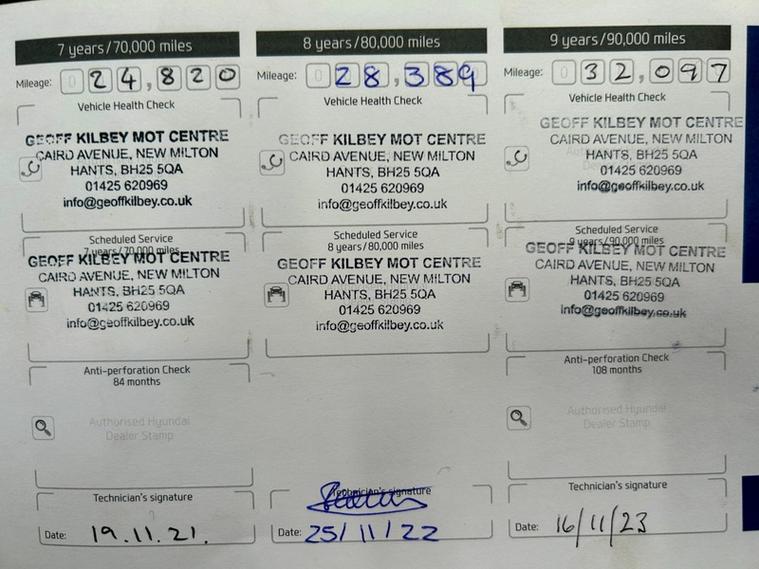 7 years/70,000 miles
Mileage: 0 2 4 , 8 2 0
Vehicle Health Check
GEOFF KILBEY MOT CENTRE
CAIRD AVENUE, NEW MILTON
HANTS, BH25 5QA
01425 620969
info@geoffkilbey.co.uk
Scheduled Service
7 years/70,000 miles
GEOFF KILBEY MOT CENTRE
CAIRD AVENUE, NEW MILTON
HANTS, BH25 5QA
01425 620969
info@geoffkilbey.co.uk
Anti-perforation Check
84 months
Authorised Hyundai
Dealer Stamp
Technician's signature
Date: 19.11.21.
8 years/80,000 miles
Mileage: 0 2 8 , 3 8 9
Vehicle Health Check
GEOFF KILBEY MOT CENTRE
CAIRD AVENUE, NEW MILTON
HANTS, BH25 5QA
01425 620969
info@geoffkilbey.co.uk
Scheduled Service
8 years/80,000 miles
GEOFF KILBEY MOT CENTRE
CAIRD AVENUE, NEW MILTON
HANTS, BH25 5QA
01425 620969
info@geoffkilbey.co.uk
Technician's signature
Date: 25/11/22
9 years/90,000 miles
Mileage: 0 3 2 , 0 9 7
Vehicle Health Check
GEOFF KILBEY MOT CENTRE
CAIRD AVENUE, NEW MILTON
HANTS, BH25 5QA
01425 620969
info@geoffkilbey.co.uk
Scheduled Service
9 years/90,000 miles
GEOFF KILBEY MOT CENTRE
CAIRD AVENUE, NEW MILTON
HANTS, BH25 5QA
01425 620969
info@geoffkilbey.co.uk
Anti-perforation Check
108 months
Authorised Hyundai
Dealer Stamp
Technician's signature
Date: 16/11/23